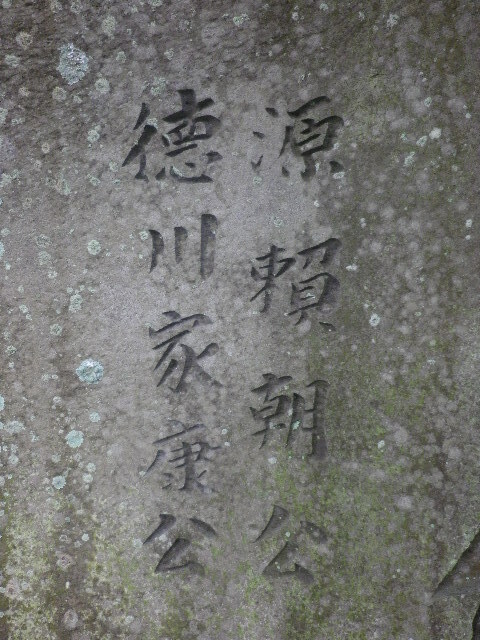 源賴朝公
德川家康公